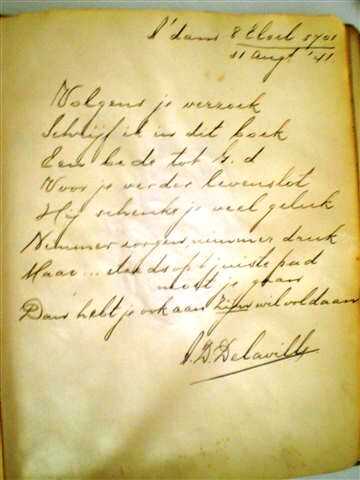 A'dam 8 Eloel 5701
31 Aug. '41
Volgens je verzoek
Schrijf ik in dit boek
Een bede tot G.d
Voor je verder levenslot
Hij schenke je veel geluk
Nimmer zorgen nimmer druk
Maar... steeds op 't juiste pad
moet je gaan
Dan hebt je ook aan Zijn wil voldaan
D. Delaville